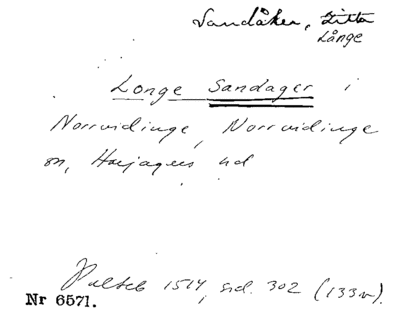 Sandåker, Litta
Långe
Longe Sandager i
Norrvidinge, Norrvidinge
sn, Harjagers hd
Palteb 1514, sid. 302 (133v).
Nr 6571.